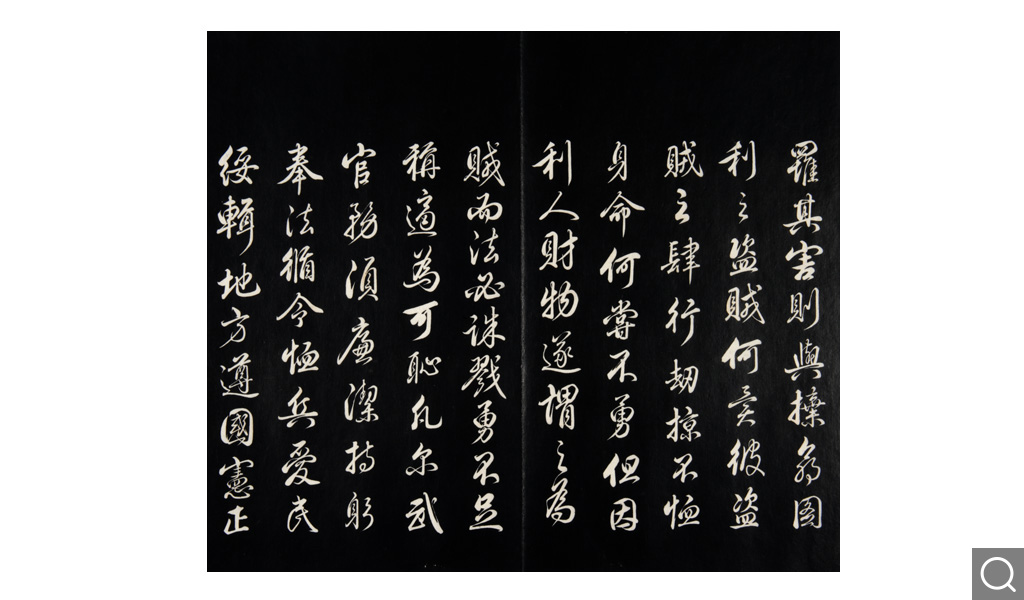 羅其害則與攘奪图
利之盜賊何異彼盜
賊之肆行劫掠不恤
身命何嘗不勇但因
利人財物遂謂之為
賊而法必誅戮勇不足
稱適為可恥凡尔武
官務須廉潔持躬
奉法循令恤兵愛民
綏輯地方遵國憲正